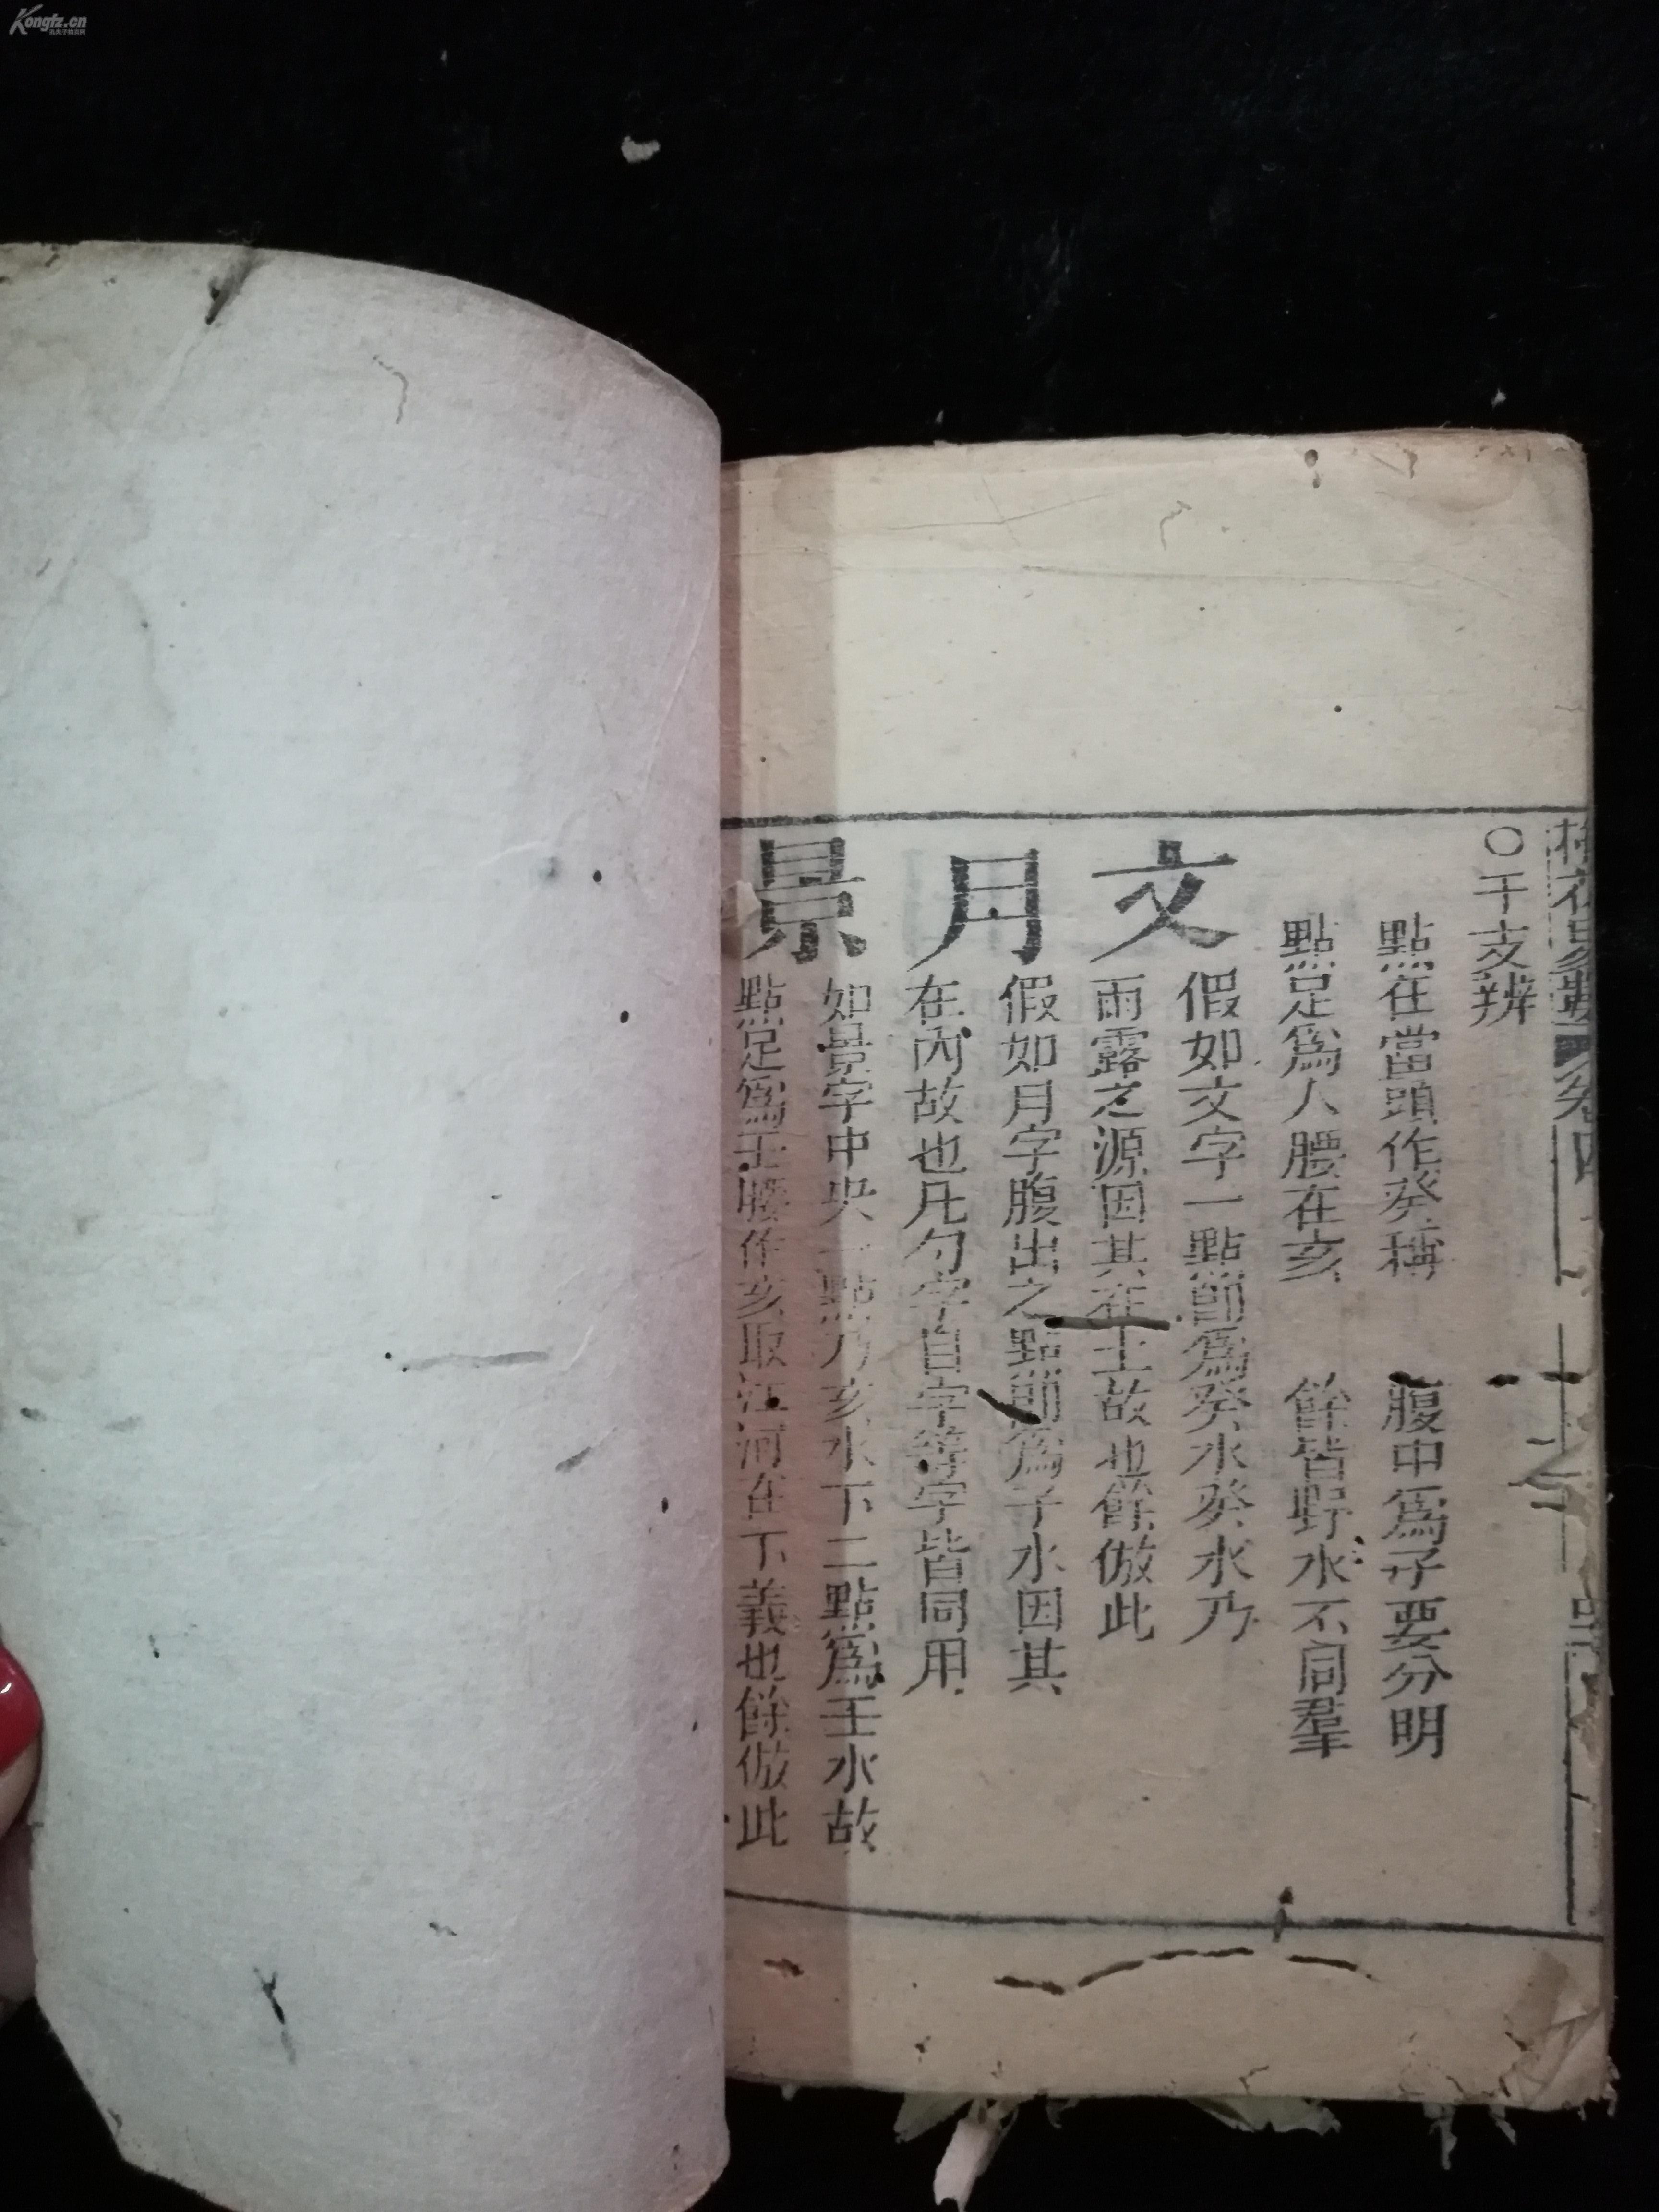 Kongfz.cn
孔夫子舊書網
梅花易數 卷四
○干支辨
點在當頭作癸稱 腹中爲子要分明
點足爲人腰在亥 餘皆野水不同羣
文 假如文字一點節爲癸水癸水乃
雨露之源因其在上故也餘倣此
月 假如月字腹出之點節爲子水因其
在內故也凡勺字自字等字皆同用
景 如景字中央一點乃亥水下二點爲壬水故
點足爲壬腰作亥取江河在下義也餘倣此